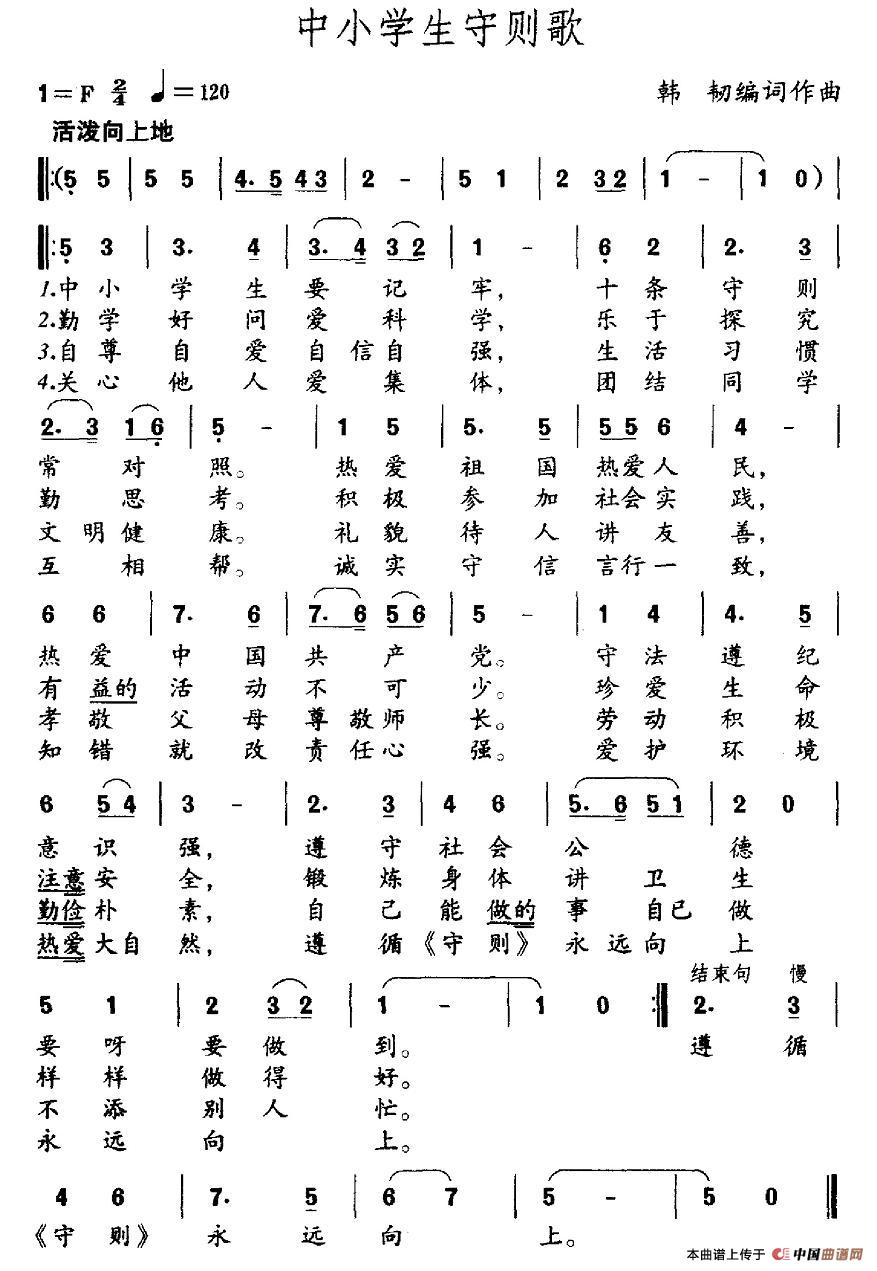 中小学生守则歌
1=F 2/4 ♩=120
韩 韧编词作曲
活泼向上地
‖:(5 5 | 5 5 | 4. 5 4 3 | 2 - | 5 1 | 2 3 2 | 1 - | 1 0) |
‖:5 3 | 3. 4 | 3. 4 3 2 | 1 - | 6 2 | 2. 3 |
1.中小学生要记牢，十条守则
2.勤学好问爱科学，乐于探究
3.自尊自爱自信自强，生活习惯
4.关心他人爱集体，团结同学
2. 3 1 6 | 5 - | 1 5 | 5. 5 | 5 5 6 | 4 - |
常对照。热爱祖国热爱人民，
勤思考。积极参加社会实践，
文明健康。礼貌待人讲友善，
互相帮。诚实守信言行一致，
6 6 | 7. 6 | 7. 6 5 6 | 5 - | 1 4 | 4. 5 |
热爱中国共产党。守法遵纪
有益的活动不可少。珍爱生命
孝敬父母尊敬师长。劳动积极
知错就改责任心强。爱护环境
6 5 4 | 3 - | 2. 3 | 4 6 | 5. 6 5 1 | 2 0 |
意识强，遵守社会公德
注意安全，锻炼身体讲卫生
勤俭朴素，自己能做的事自己做
热爱大自然，遵循《守则》永远向上
结束句 慢
5 1 | 2 3 2 | 1 - | 1 0 :‖ 2. 3 |
要呀要做到。遵循
样样做得好。
不添别人忙。
永远向上。
4 6 | 7. 5 | 6 7 | 5 - | 5 0 ‖
《守则》永远向上。
本曲谱上传于 中国曲谱网